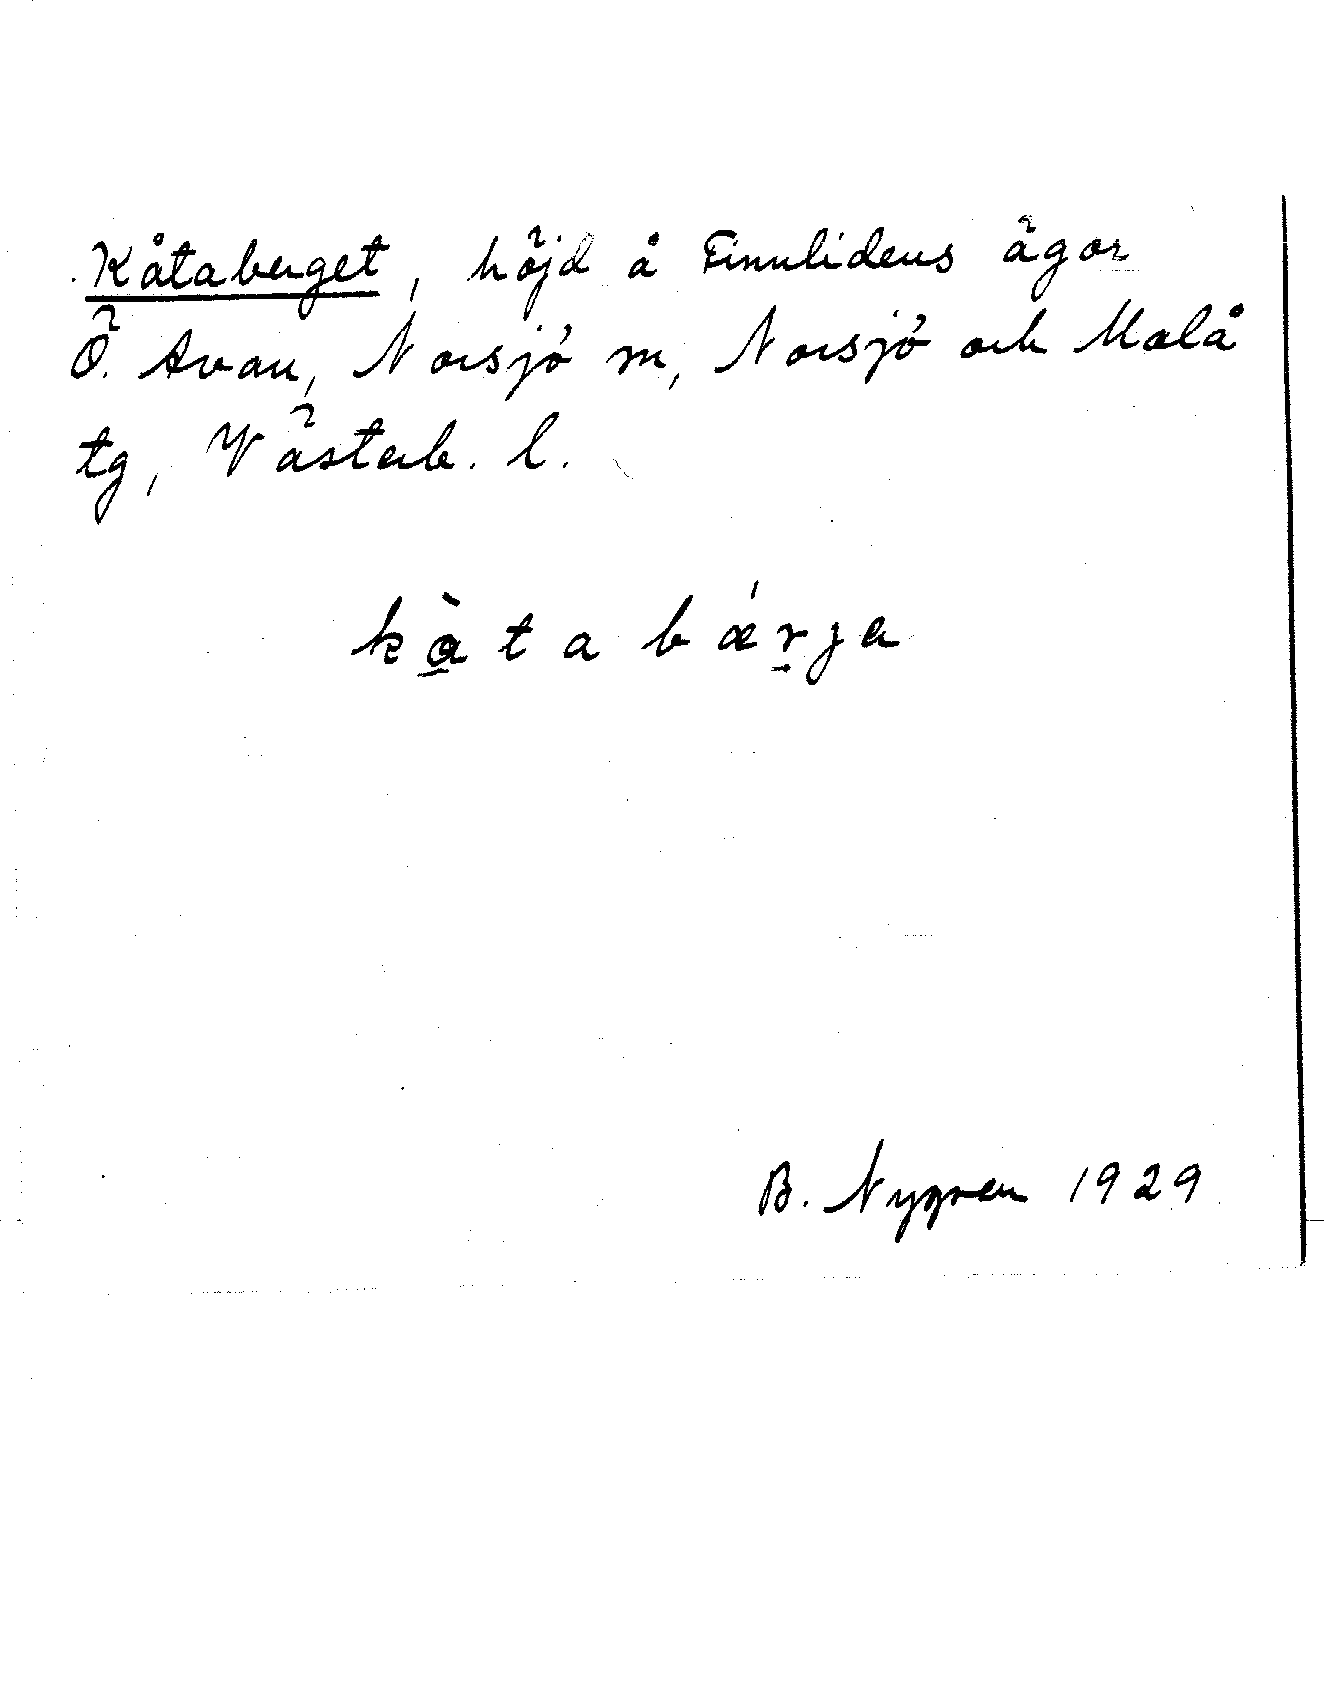 Kåtaberget, höjd å Finnlidens ägor
Ö. Avan, Norsjö sn, Norsjö och Malå
tg, Västerb. l.
kå̀tabǽrja
B. Nygren 1929